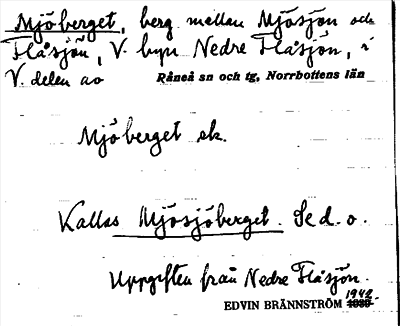 Mjöberget, berg mellan Mjösjön och
Flåsjön, V. byn Nedre Flåsjön, i
V. delen av Råneå sn och tg, Norrbottens län
Mjöberget sk.
Kallas Mjösjöberget. Se d. o.
Uppgiften från Nedre Flåsjön.
1942
EDVIN BRÄNNSTRÖM